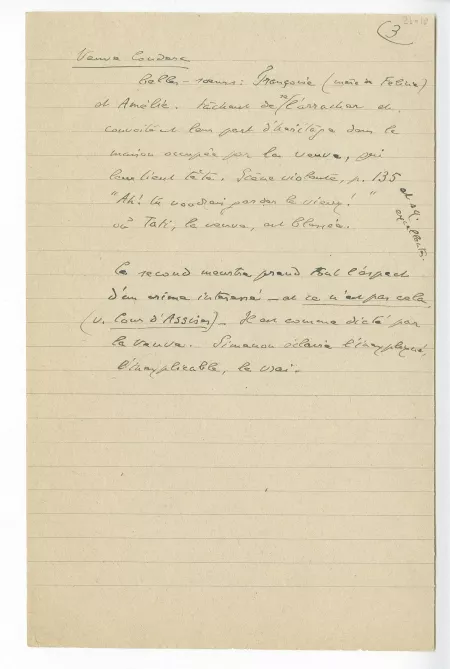 3
Veuve Couderc
belles-sœurs: Françoise (mère de Félicie)
et Amélie. tâchent de l'arracher et
convoitent leur part d'héritage dans la
maison occupée par la veuve, qui
leur tient tête. Scène violente, p. 135
et sq.
excellente.
"Ah! tu voudrais garder le vieux! "
où Tati, la veuve, est blessée.
Le second meurtre prend tout l'aspect
d'un crime intéressé – et ce n'est pas cela
(v. Cour d'Assises) – Il est comme dicté par
la veuve. Simenon éclaire l'inexpliqué,
l'inexplicable, le vrai.